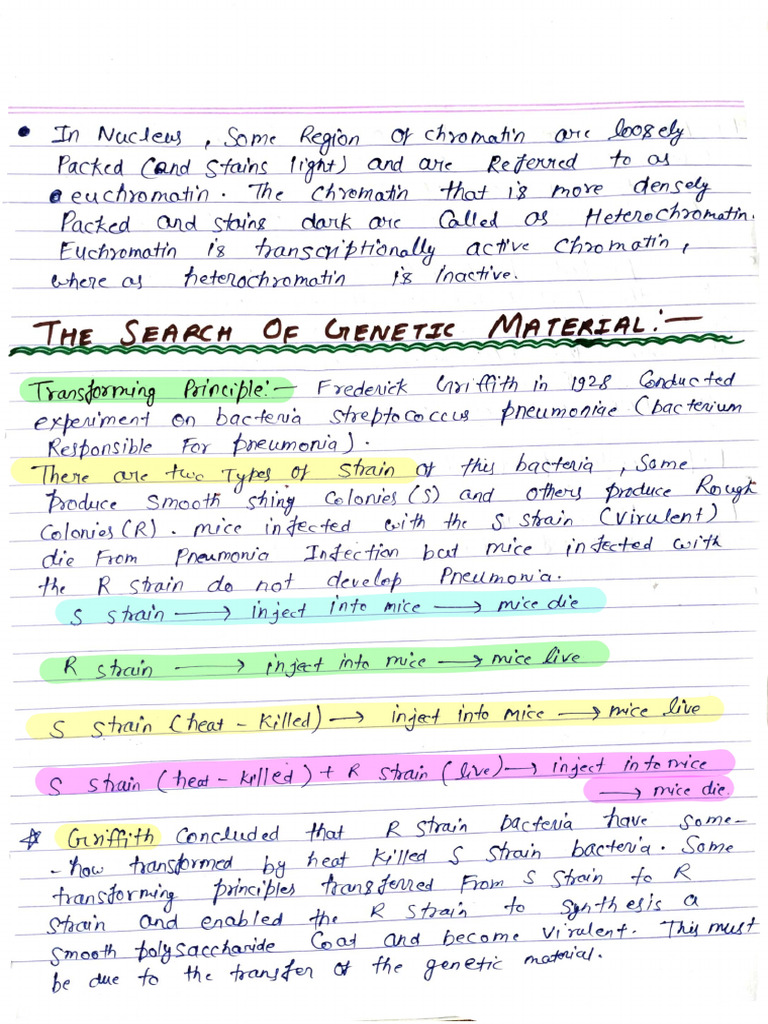 • In Nucleus, Some Region of chromatin are loosely
Packed (and stains light) and are Referred to as
euchromatin. The chromatin that is more densely
Packed and stains dark are Called as Heterochromatin.
Euchromatin is transcriptionally active chromatin,
where as heterochromatin is inactive.
THE SEARCH OF GENETIC MATERIAL:—
Transforming Principle:— Frederick Griffith in 1928 Conducted
experiment on bacteria streptococcus pneumoniae (bacterium
Responsible For pneumonia).
There are two Types of Strain of this bacteria, Some
Produce Smooth shing Colonies (S) and others produce Rough
Colonies (R). mice infected with the S strain (virulent)
die From Pneumonia Infection but mice infected with
the R strain do not develop Pneumonia.
S strain → inject into mice → mice die
R strain → inject into mice → mice live
S strain (heat-killed) → inject into mice → mice live
S strain (heat-killed) + R strain (live) → inject into mice
→ mice die.
☆ Griffith concluded that R strain bacteria have some-
-how transformed by heat killed S strain bacteria. Some
transforming principles transferred From S strain to R
strain and enabled the R strain to synthesis a
smooth polysaccharide Coat and become virulent. This must
be due to the transfer of the genetic material.